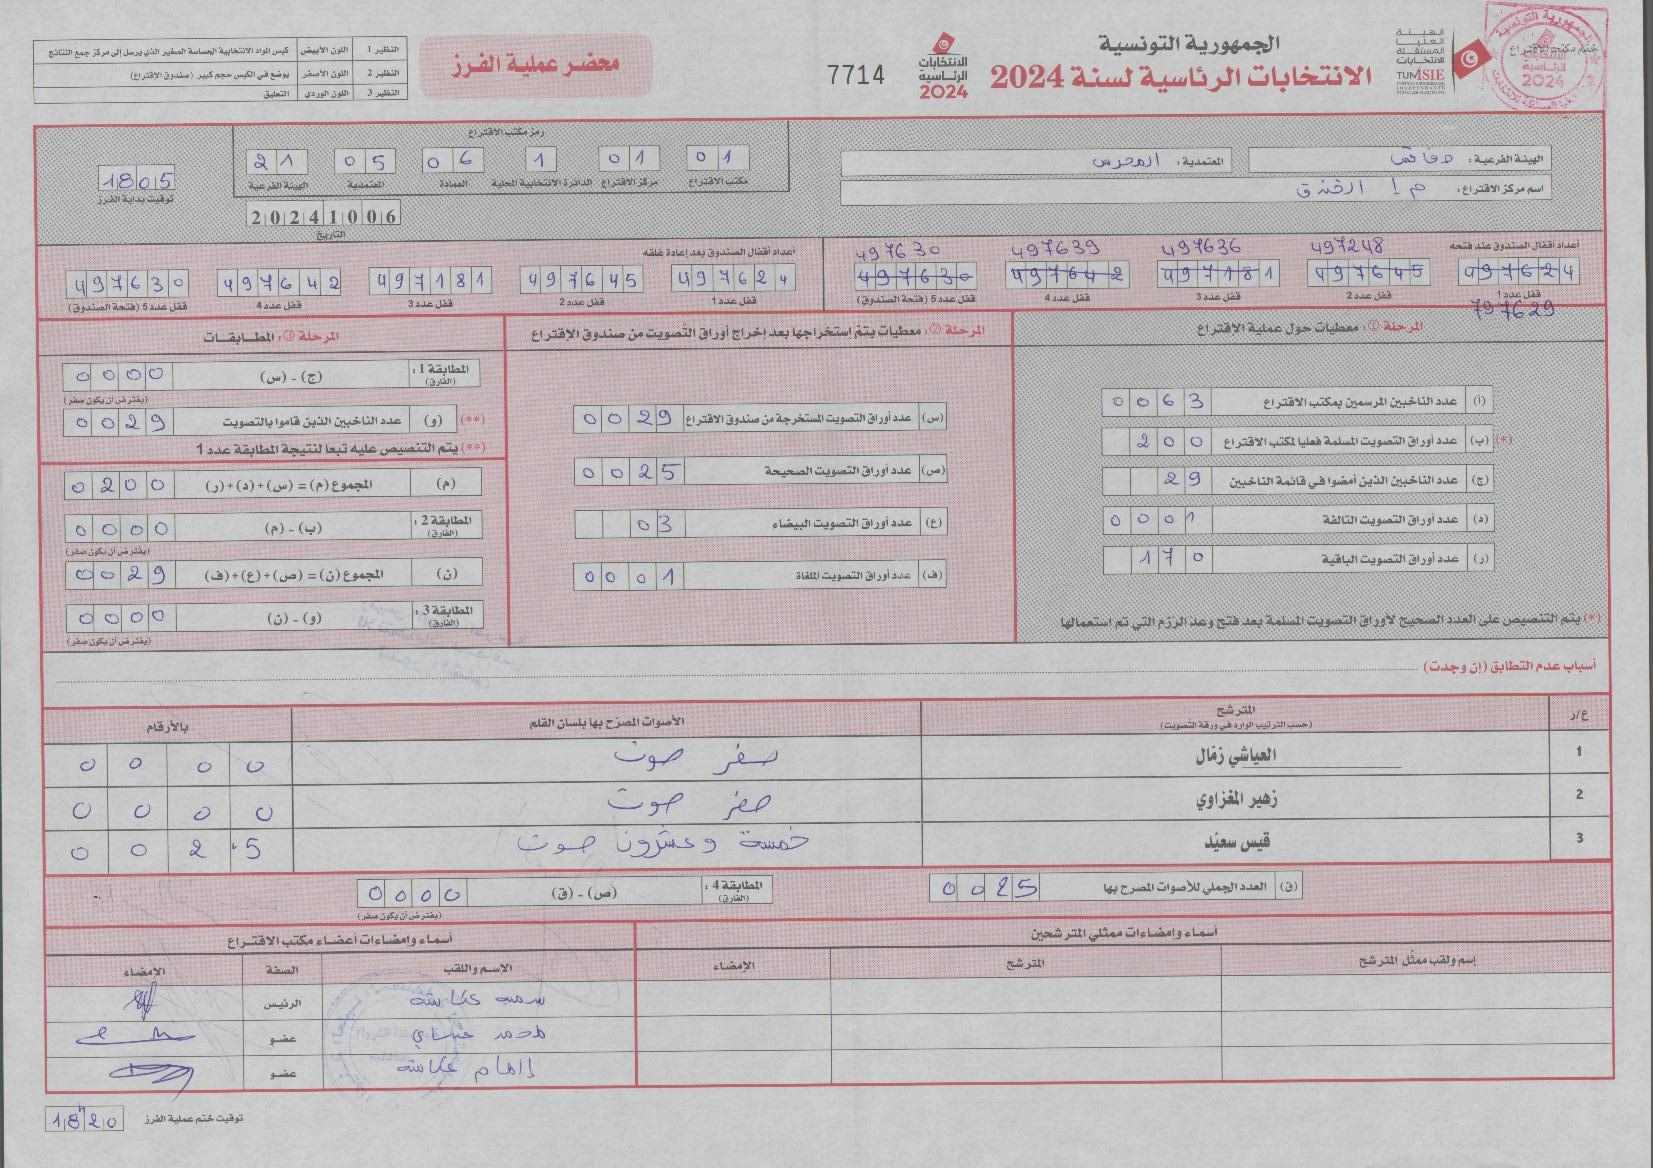 الجمهورية التونسية
الانتخابات الرئاسية لسنة 2024
الهيئة
العليا
المستقلة
للانتخابات
TUNISIE
ختم مكتب الاقتراع
الانتخابات
الرئاسية
2024
7714
محضر عملية الفرز
النظير 1 اللون الأبيض كيس المواد الانتخابية الحساسة الصغير الذي يرسل إلى مركز جمع النتائج
النظير 2 اللون الأصفر يوضع في الكيس حجم كبير (صندوق الإقتراع)
النظير 3 اللون الوردي التعليق
الهيئة الفرعية: صفاقس
المعتمدية: المحرس
اسم مركز الاقتراع: م إ الخندق
رمز مكتب الاقتراع
01 مكتب الاقتراع
01 مركز الاقتراع
1 الدائرة الانتخابية المحلية
06 العمادة
05 المعتمدية
21 الهيئة الفرعية
20241006
التاريخ
1805
توقيت بداية الفرز
أعداد أقفال الصندوق عند فتحه
497248 497636 497639 497630
497624 497645 497181 497642 497630
قفل عدد 1 قفل عدد 2 قفل عدد 3 قفل عدد 4 قفل عدد 5 (فتحة الصندوق)
797629
أعداد أقفال الصندوق بعد إعادة غلقه
497624 497645 497181 497642 497630
قفل عدد 1 قفل عدد 2 قفل عدد 3 قفل عدد 4 قفل عدد 5 (فتحة الصندوق)
المرحلة ①: معطيات حول عملية الاقتراع
(أ) عدد الناخبين المرسمين بمكتب الاقتراع 0063
(*) (ب) عدد أوراق التصويت المسلمة فعليا لمكتب الاقتراع 200
(ج) عدد الناخبين الذين أمضوا في قائمة الناخبين 29
(د) عدد أوراق التصويت التالفة 0001
(ر) عدد أوراق التصويت الباقية 170
(*) يتم التنصيص على العدد الصحيح لأوراق التصويت المسلمة بعد فتح وعد الرزم التي تم استعمالها
المرحلة ②: معطيات يتم استخراجها بعد إخراج أوراق التصويت من صندوق الإقتراع
(س) عدد أوراق التصويت المستخرجة من صندوق الاقتراع 0029
(ص) عدد أوراق التصويت الصحيحة 0025
(ع) عدد أوراق التصويت البيضاء 03
(ف) عدد أوراق التصويت الملغاة 0001
المرحلة ③: المطابقات
المطابقة 1: (الفارق) (ج) - (س) 0000
(يفترض أن يكون صفر)
(**) (و) عدد الناخبين الذين قاموا بالتصويت 0029
(**) يتم التنصيص عليه تبعا لنتيجة المطابقة عدد 1
(م) المجموع (م) = (س)+(د)+(ر) 0200
المطابقة 2: (الفارق) (ب) - (م) 0000
(يفترض أن يكون صفر)
(ن) المجموع (ن) = (ص)+(ع)+(ف) 0029
المطابقة 3: (الفارق) (و) - (ن) 0000
(يفترض أن يكون صفر)
أسباب عدم التطابق (إن وجدت)
ع/ر المترشح الأصوات المصرح بها بلسان القلم بالأرقام
(حسب الترتيب الوارد في ورقة التصويت)
1 العياشي زمّال صفر صوت 0000
2 زهير المغزاوي صفر صوت 0000
3 قيس سعيّد خمسة وعشرون صوت 0025
(ق) العدد الجملي للأصوات المصرح بها 0025
المطابقة 4: (الفارق) (ص) - (ق) 0000
(يفترض أن يكون صفر)
أسماء وإمضاءات ممثلي المترشحين
إسم ولقب ممثّل المترشح المترشح الإمضاء
أسماء وإمضاءات أعضاء مكتب الاقتراع
الاسم واللقب الصفة الإمضاء
سمية عكاشة الرئيس
محمد عضو
إلهام عكاشة عضو
توقيت ختم عملية الفرز 1820